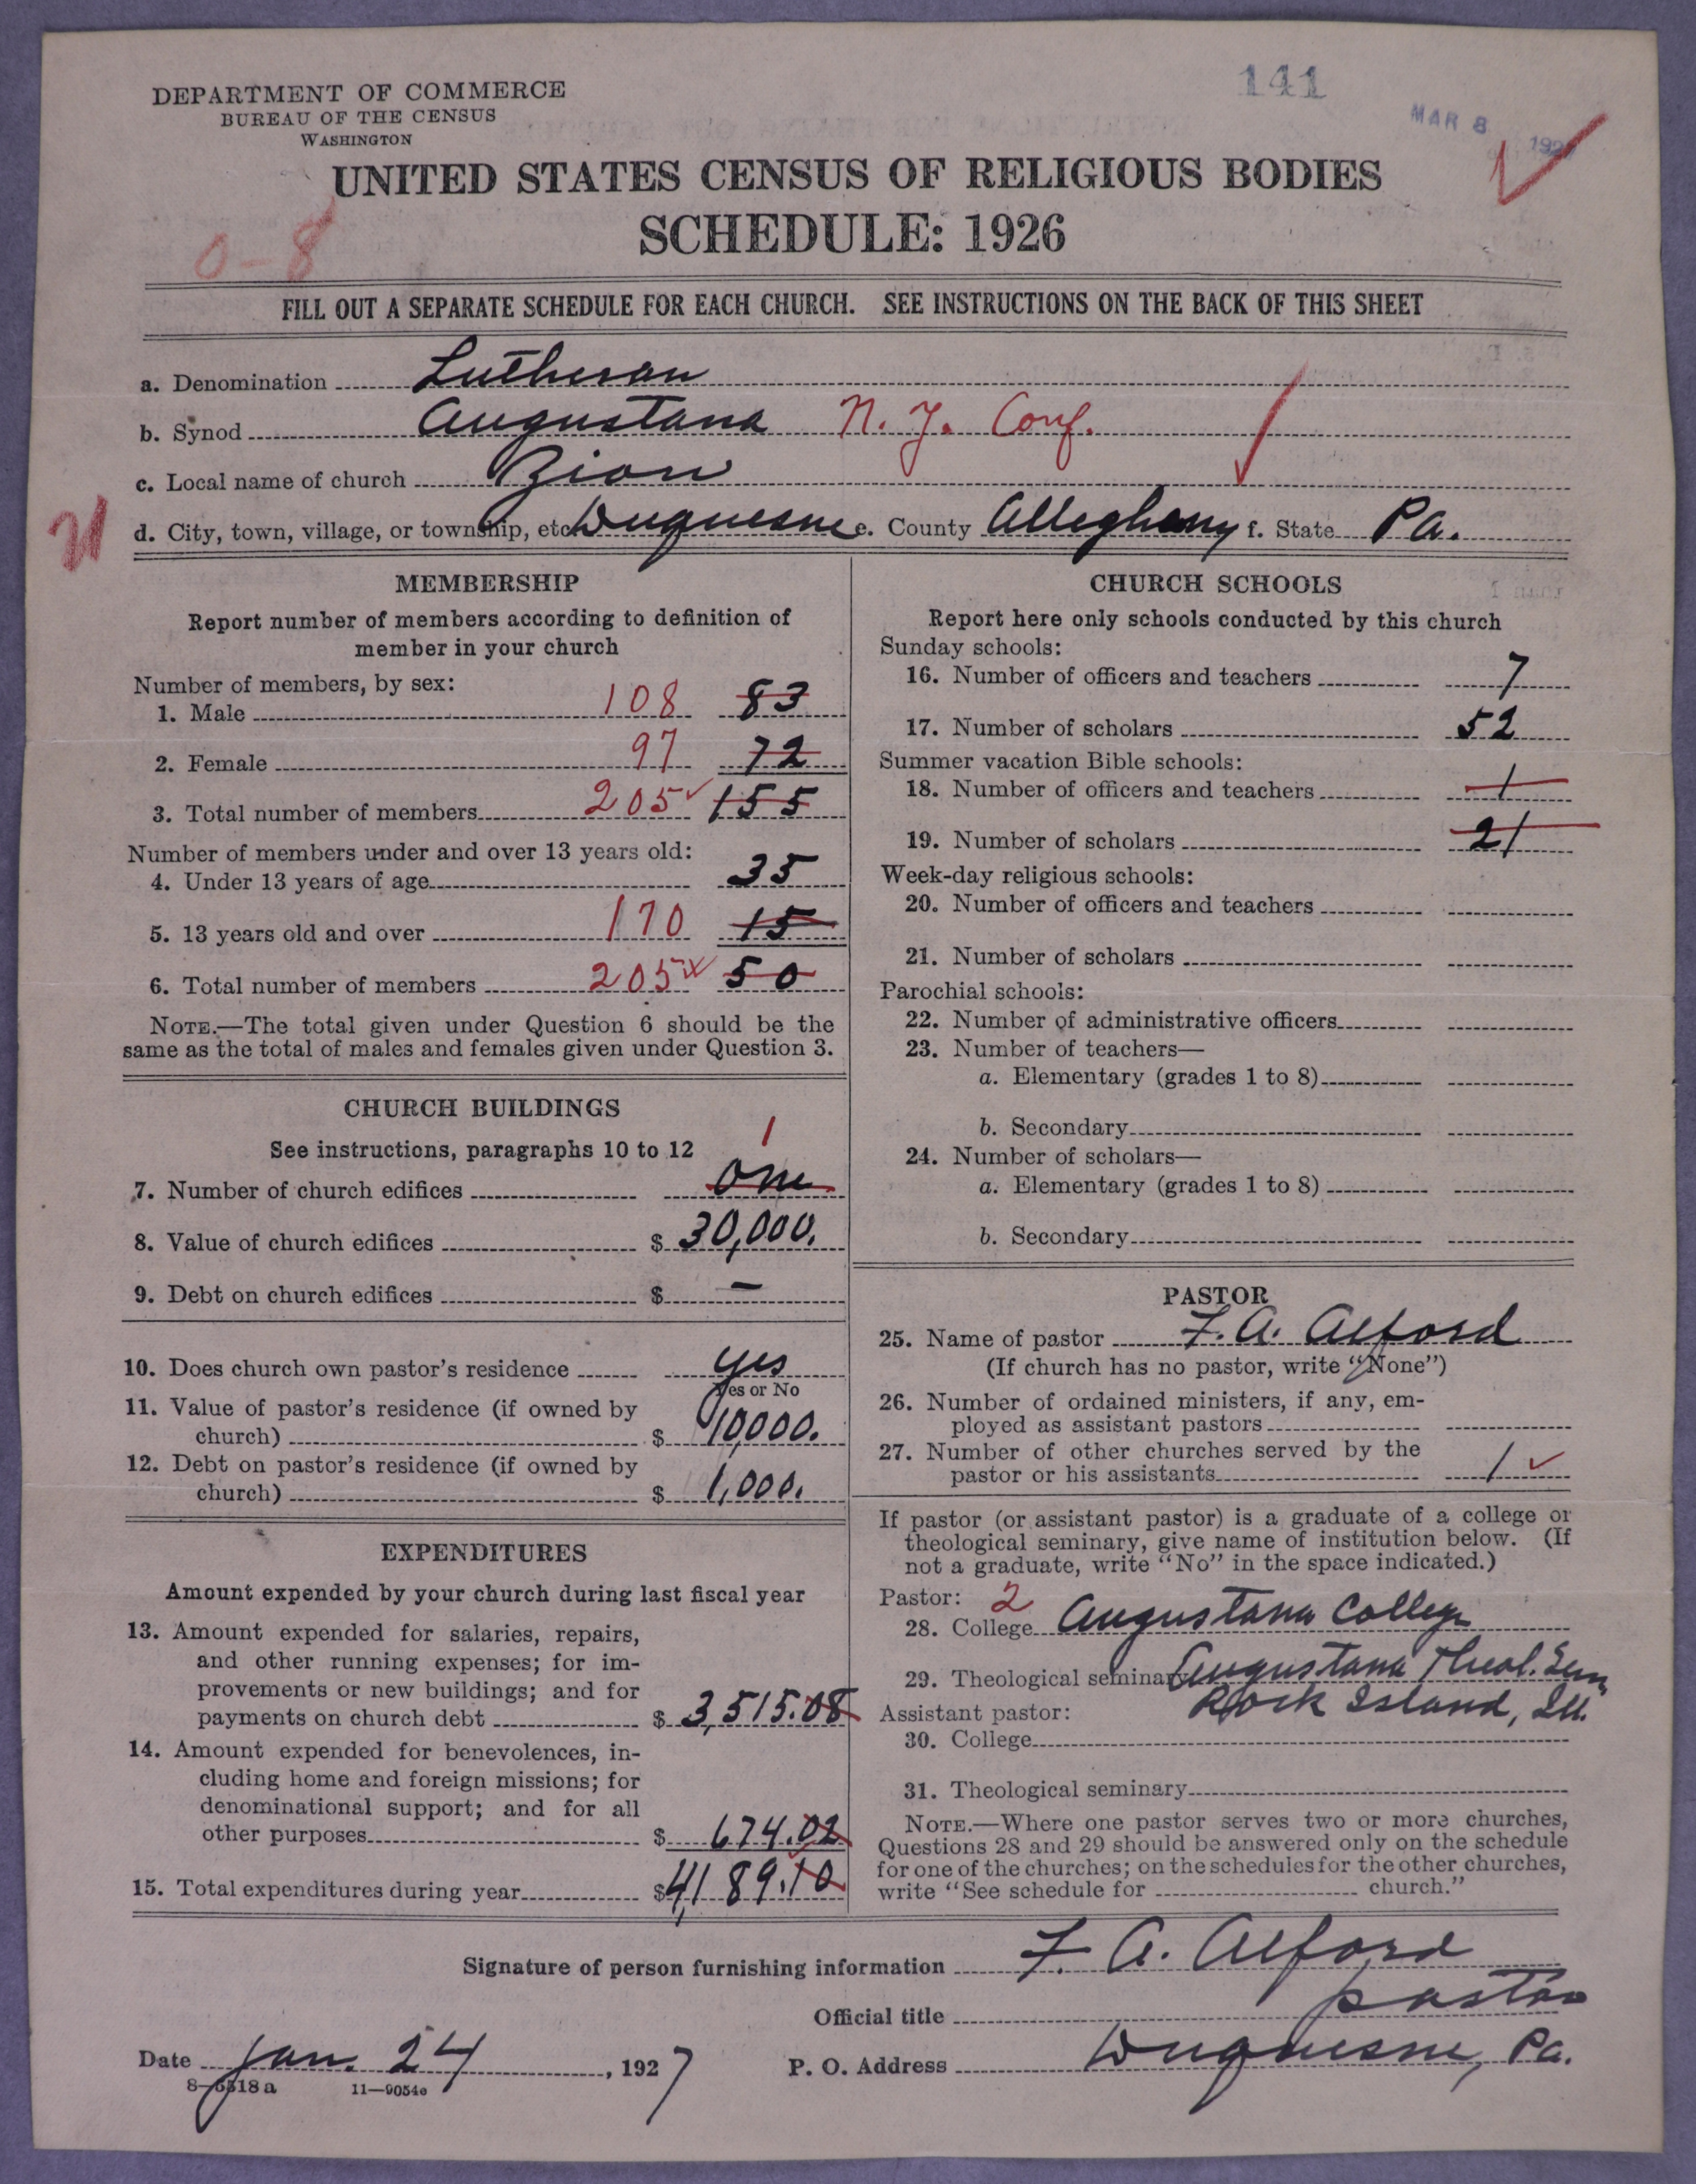 141
MAR 8 192
DEPARTMENT OF COMMERCE
BUREAU OF THE CENSUS
WASHINGTON
UNITED STATES CENSUS OF RELIGIOUS BODIES
SCHEDULE: 1926
0-8
FILL OUT A SEPARATE SCHEDULE FOR EACH CHURCH. SEE INSTRUCTIONS ON THE BACK OF THIS SHEET
a. Denomination Lutheran
b. Synod Augustana N. Y. Conf.
c. Local name of church Zion
21
d. City, town, village, or township, etc. Duquesne e. County Allegheny f. State Pa.
MEMBERSHIP
Report number of members according to definition of
member in your church
Number of members, by sex:
1. Male 108 83
2. Female 97 72
3. Total number of members 205 155
Number of members under and over 13 years old:
4. Under 13 years of age 35
5. 13 years old and over 170 15
6. Total number of members 205 50
NOTE.—The total given under Question 6 should be the
same as the total of males and females given under Question 3.
CHURCH BUILDINGS
See instructions, paragraphs 10 to 12
1
7. Number of church edifices One
8. Value of church edifices $ 30,000.
9. Debt on church edifices $ —
10. Does church own pastor's residence yes
Yes or No
11. Value of pastor's residence (if owned by
church) $ 10,000.
12. Debt on pastor's residence (if owned by
church) $ 1,000.
EXPENDITURES
Amount expended by your church during last fiscal year
13. Amount expended for salaries, repairs,
and other running expenses; for im-
provements or new buildings; and for
payments on church debt $ 3,515.08
14. Amount expended for benevolences, in-
cluding home and foreign missions; for
denominational support; and for all
other purposes $ 674.02
15. Total expenditures during year $ 4,189.10
CHURCH SCHOOLS
Report here only schools conducted by this church
Sunday schools:
16. Number of officers and teachers 7
17. Number of scholars 52
Summer vacation Bible schools:
18. Number of officers and teachers 1
19. Number of scholars 21
Week-day religious schools:
20. Number of officers and teachers
21. Number of scholars
Parochial schools:
22. Number of administrative officers
23. Number of teachers—
a. Elementary (grades 1 to 8)
b. Secondary
24. Number of scholars—
a. Elementary (grades 1 to 8)
b. Secondary
PASTOR
25. Name of pastor F. A. Alford
(If church has no pastor, write "None")
26. Number of ordained ministers, if any, em-
ployed as assistant pastors
27. Number of other churches served by the
pastor or his assistants 1
If pastor (or assistant pastor) is a graduate of a college or
theological seminary, give name of institution below. (If
not a graduate, write "No" in the space indicated.)
Pastor: 2
28. College Augustana College
29. Theological seminary Augustana Theol. Sem
Rock Island, Ill.
Assistant pastor:
30. College
31. Theological seminary
NOTE.—Where one pastor serves two or more churches,
Questions 28 and 29 should be answered only on the schedule
for one of the churches; on the schedules for the other churches,
write "See schedule for church."
Signature of person furnishing information F. A. Alford
Official title pastor
Date Jan. 24, 1927 P. O. Address Duquesne, Pa.
8-5518 a 11—9054e